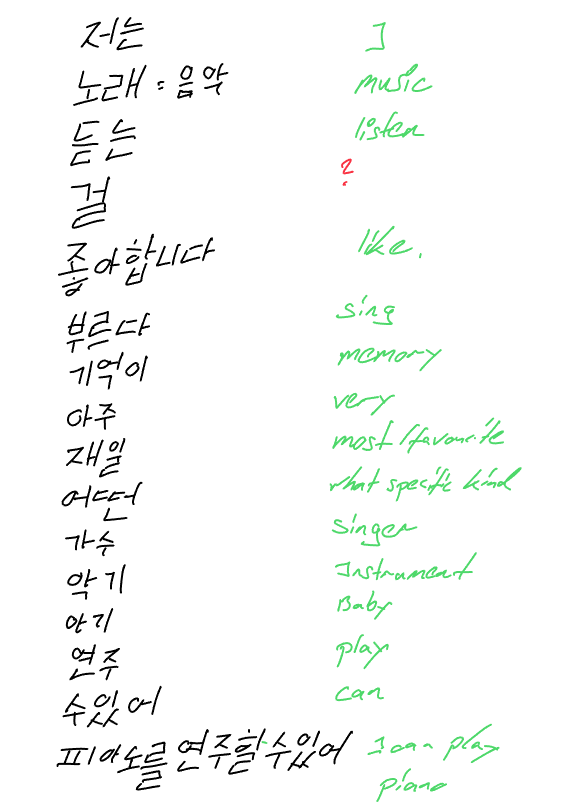 저는 I
노래 = 음악 music
듣는 listen
걸 ?
좋아합니다 like.
부르다 sing
기억이 memory
아주 very
재일 most/favourite
어떤 what specific kind
가수 singer
악기 Instrument
안기 Baby
연주 play
수있어 can
피아노를 연주할 수있어 I can play
piano